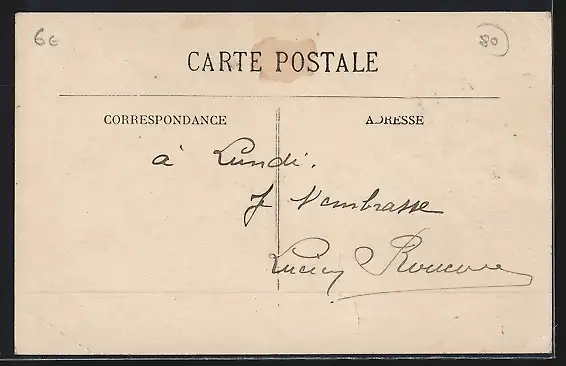 6e
80
CARTE POSTALE
CORRESPONDANCE
ADRESSE
à Lundi.
J t'embrasse
Lucien